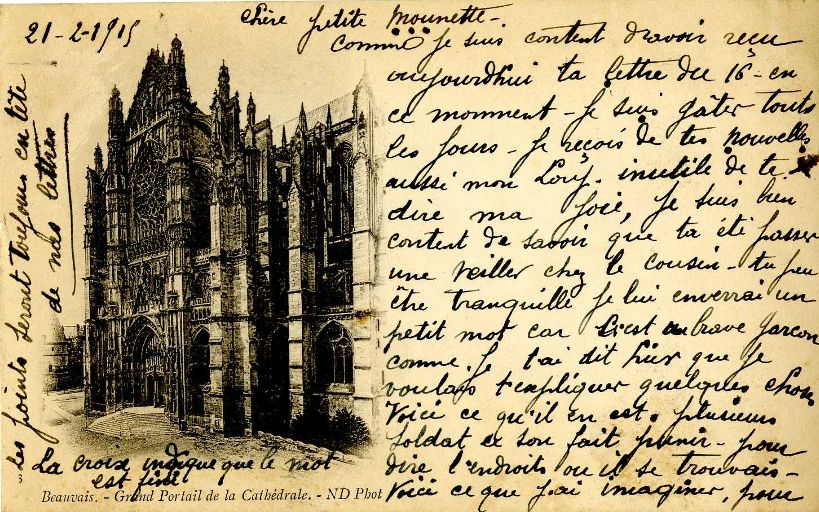 21-2-1915
chère petite Mounette-
Comme je suis content d'avoir reçu
aujourdhui ta lettre du 16 - en
ce momment - je suis gâter touts
les jours - je reçois de tes nouvelles
aussi mon inutile de te
dire ma joie, je suis bien
content de savoir que ta été passer
une veiller chez le cousin - tu peu
être tranquille je lui enverrai un
petit mot car c'est un brave garçon
comme je t'ai dit hier que je
voulais t'expliquer quelques chose
Voici ce qu'il en est. plusieurs
soldat ce son fait punir - pour
dire l'endroits ou il se trouvais -
Voici ce que j'ai imaginer, pour
Les points seront toujours en tête
de mes lettres
La croix indique que le mot
est fini
3
Beauvais. - Grand Portail de la Cathédrale. - ND Phot